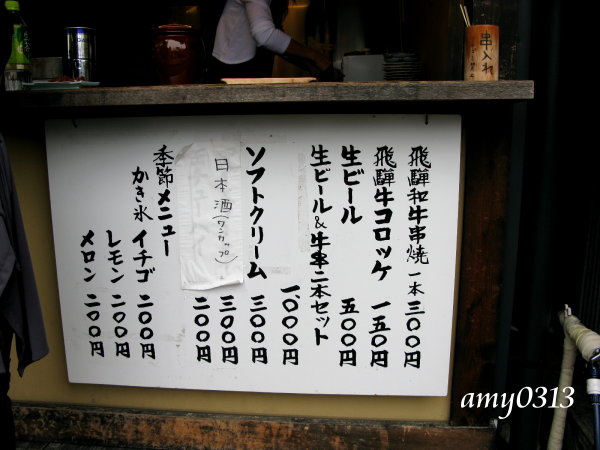 飛騨和牛串焼 一本 三〇〇円
飛騨牛コロッケ 一五〇円
生ビール 五〇〇円
生ビール&牛串二本セット
一、〇〇〇円
ソフトクリーム 三〇〇円
日本酒(ワンカップ) 三〇〇円
二〇〇円
季節メニュー
かき氷 イチゴ 二〇〇円
レモン 二〇〇円
メロン 二〇〇円
串入れ
amy0313